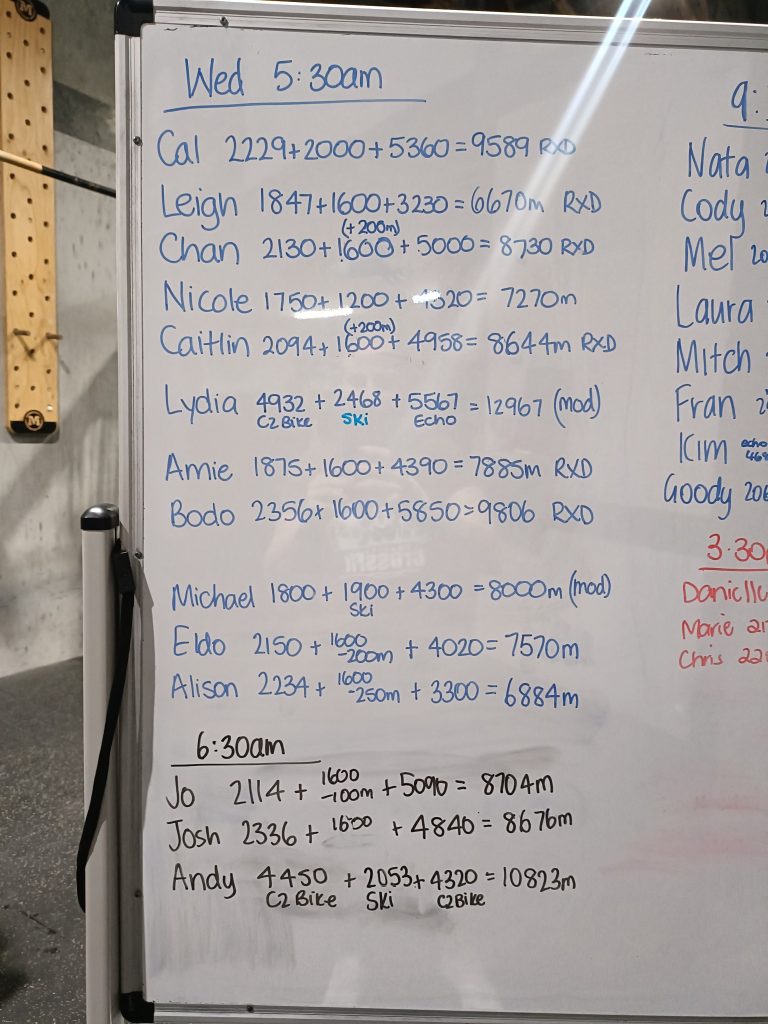 Wed 5:30am
Cal 2229+2000+5360=9589 RXD
Leigh 1847+1600+3230=6670m RXD
(+200m)
Chan 2130+1600+5000=8730 RXD
Nicole 1750+1200+4320=7270m
(+200m)
Caitlin 2094+1600+4958=8644m RXD
Lydia 4932+2468+5567=12967 (mod)
C2 Bike Ski Echo
Amie 1875+1600+4390=7885m RXD
Bodo 2356+1600+5850=9806 RXD
Michael 1800+1900+4300=8000m (mod)
Ski
Eldo 2150+1600 -200m+4020=7570m
Alison 2234+1600 -250m+3300=6884m
6:30am
Jo 2114+1600 -100m+5090=8704m
Josh 2336+1600+4840=8676m
Andy 4450+2053+4320=10823m
C2 Bike Ski C2 Bike
9:
Nata
Cody
Mel
Laura
Mitch
Fran
Kim echo
Goody
3:30
Marie
Chris